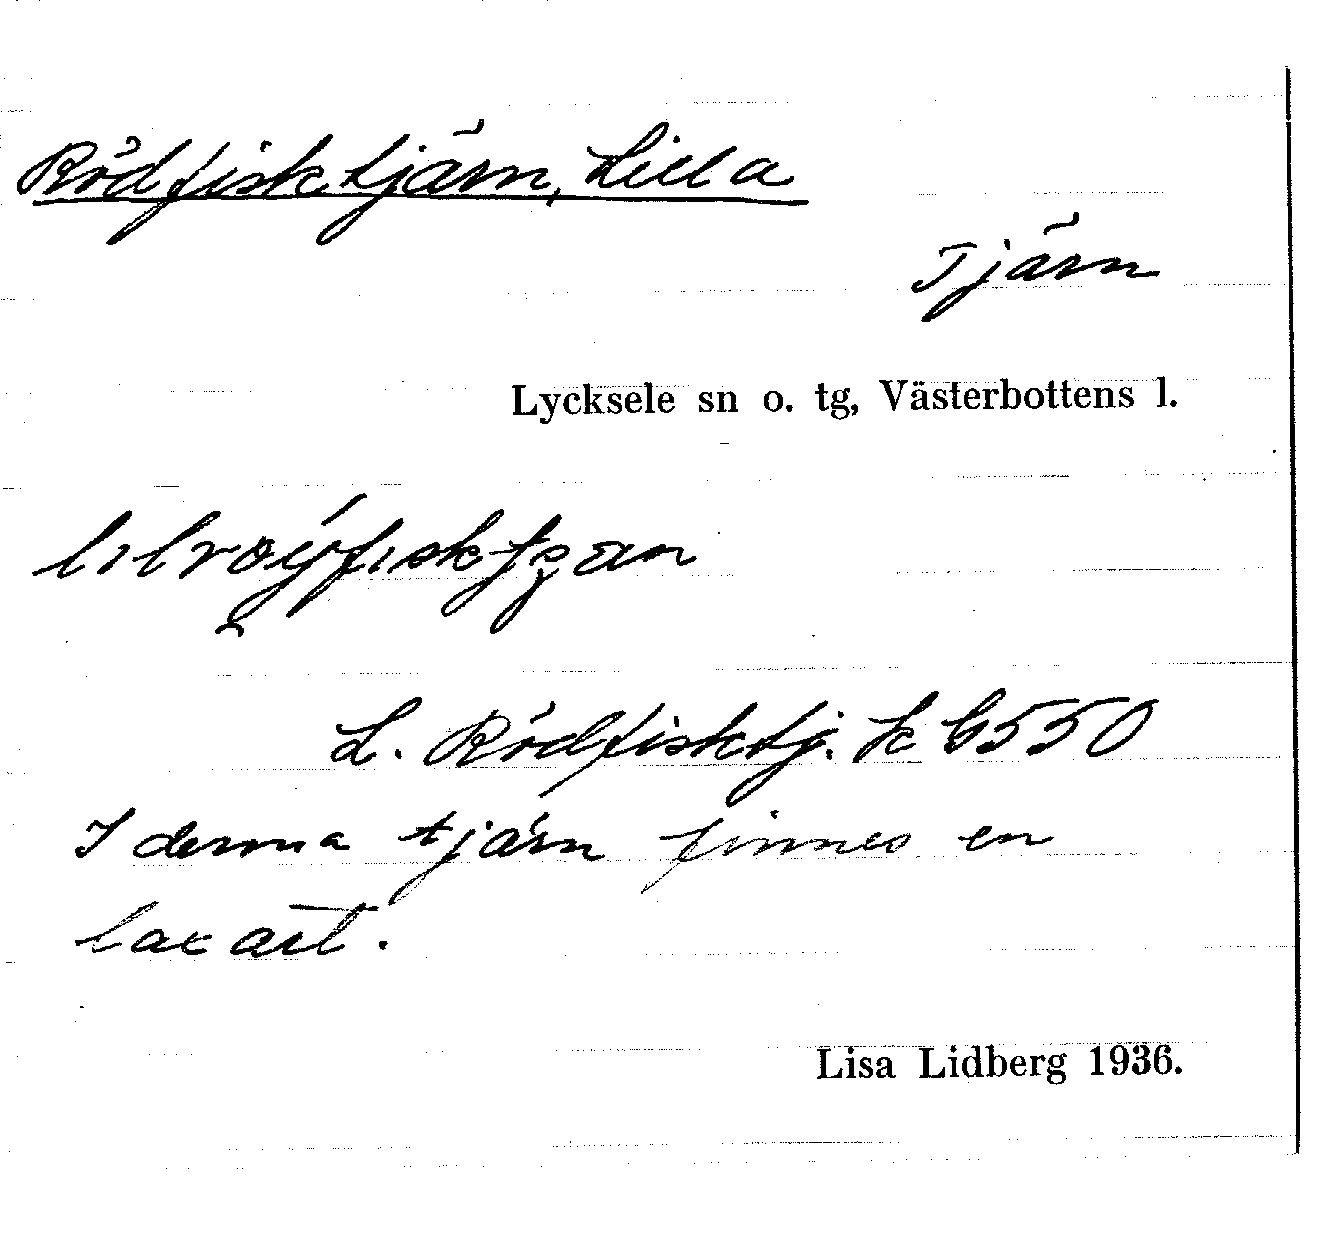 Rödfisktjärn, Lilla
Tjärn
Lycksele sn o. tg, Västerbottens l.
L. Rödfisktj. k G550
I denna tjärn finnes en
laxart.
Lisa Lidberg 1936.